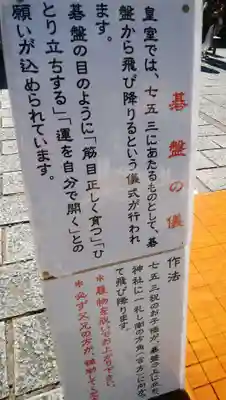 碁盤の儀
皇室では、七五三にあたるものとして、碁
盤から飛び降りるという儀式が行われ
ます。
碁盤の目のように「筋目正しく育つ」「ひ
とり立ちする」「運を自分で開く」との
願いが込められています。
作法
七五三祝のお子様が、碁盤の上に立ち
神社に一礼し南の方角(吉方)に向かっ
て飛び降ります。
＊履物を脱いでお上がり下さい。
＊必ず父兄の方が、補助して